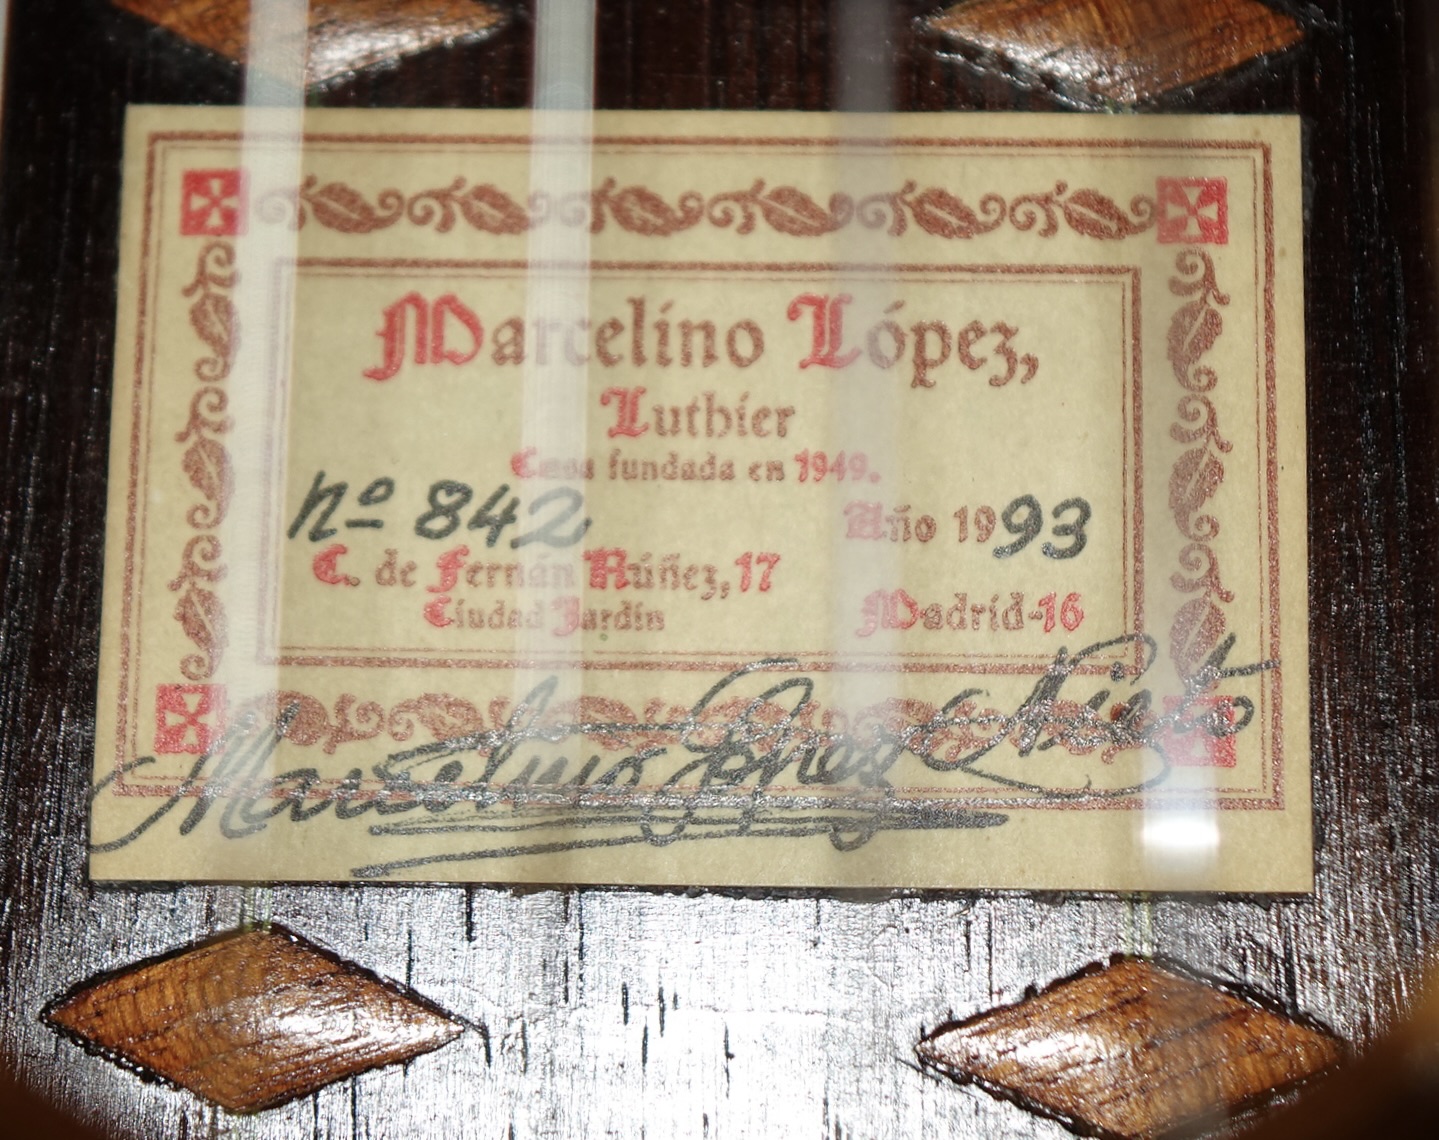 Marcelino López,
Luthier
Casa fundada en 1949.
nº 842 Año 1993
C. de Fernán Núñez, 17
Ciudad Jardín Madrid-16
Marcelino López Nieto